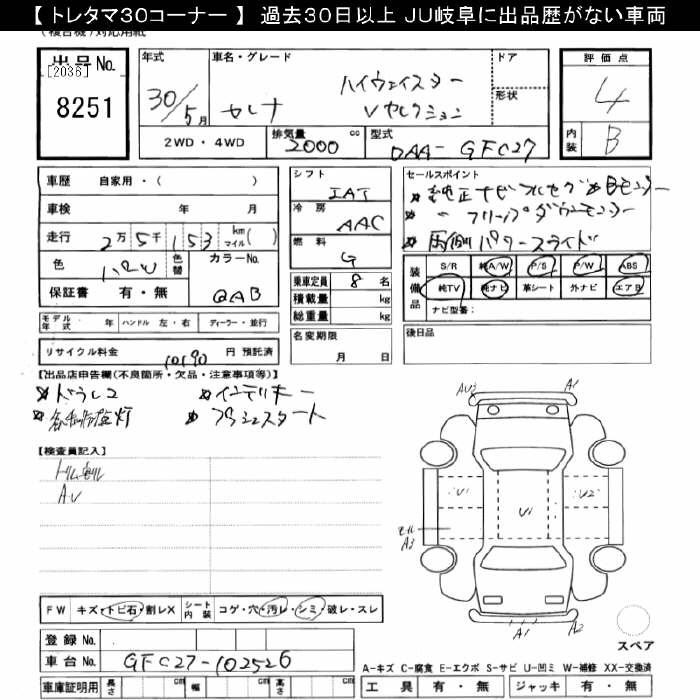 【 トレタマ30コーナー 】 過去30日以上 JU岐阜に出品歴がない車両
出品No.
[2036]
8251
年式
30/5月
車名・グレード
セレナ
ハイウェイスター
Vセレクション
ドア
形状
評価点
4
内装
B
2WD ・ 4WD
排気量
2000 cc
型式
DAA- GFC27
車歴 自家用・( )
車検 年 月
走行 2万5千153 km マイル( )
色 パール 色替
カラーNo. QAB
保証書 有・無
シフト
IAT
冷房
AAC
燃料
G
乗車定員 8 名
積載量 kg
総重量 kg
セールスポイント
純正ナビフルセグ
フリップダウンモニター
両側パワースライド
装備品
S/R 純A/W P/S P/W ABS
純TV 純ナビ 革シート 外ナビ エアB
ナビ型番:
モデル年式 年 ハンドル 左・右 ディーラー・並行
リサイクル料金 10190 円 預託済
名変期限
月 日
後日品
【出品店申告欄(不良箇所・欠品・注意事項等)】
ドラレコ
インテリキー
プッシュスタート
【検査員記入】
AU
AU3
A1
U1
U2
U1
モル
A3
A1
A2
スペア
FW キズ・トビ石・割レX シート内装 コゲ・穴・汚レ・シミ・破レ・スレ
登録No.
車台No. GFC27-102526
車庫証明用 長さ cm 幅 cm 高さ cm
A-キズ C-腐食 E-エクボ S-サビ U-凹ミ W-補修 XX-交換済
工具 有・無 ジャッキ 有・無